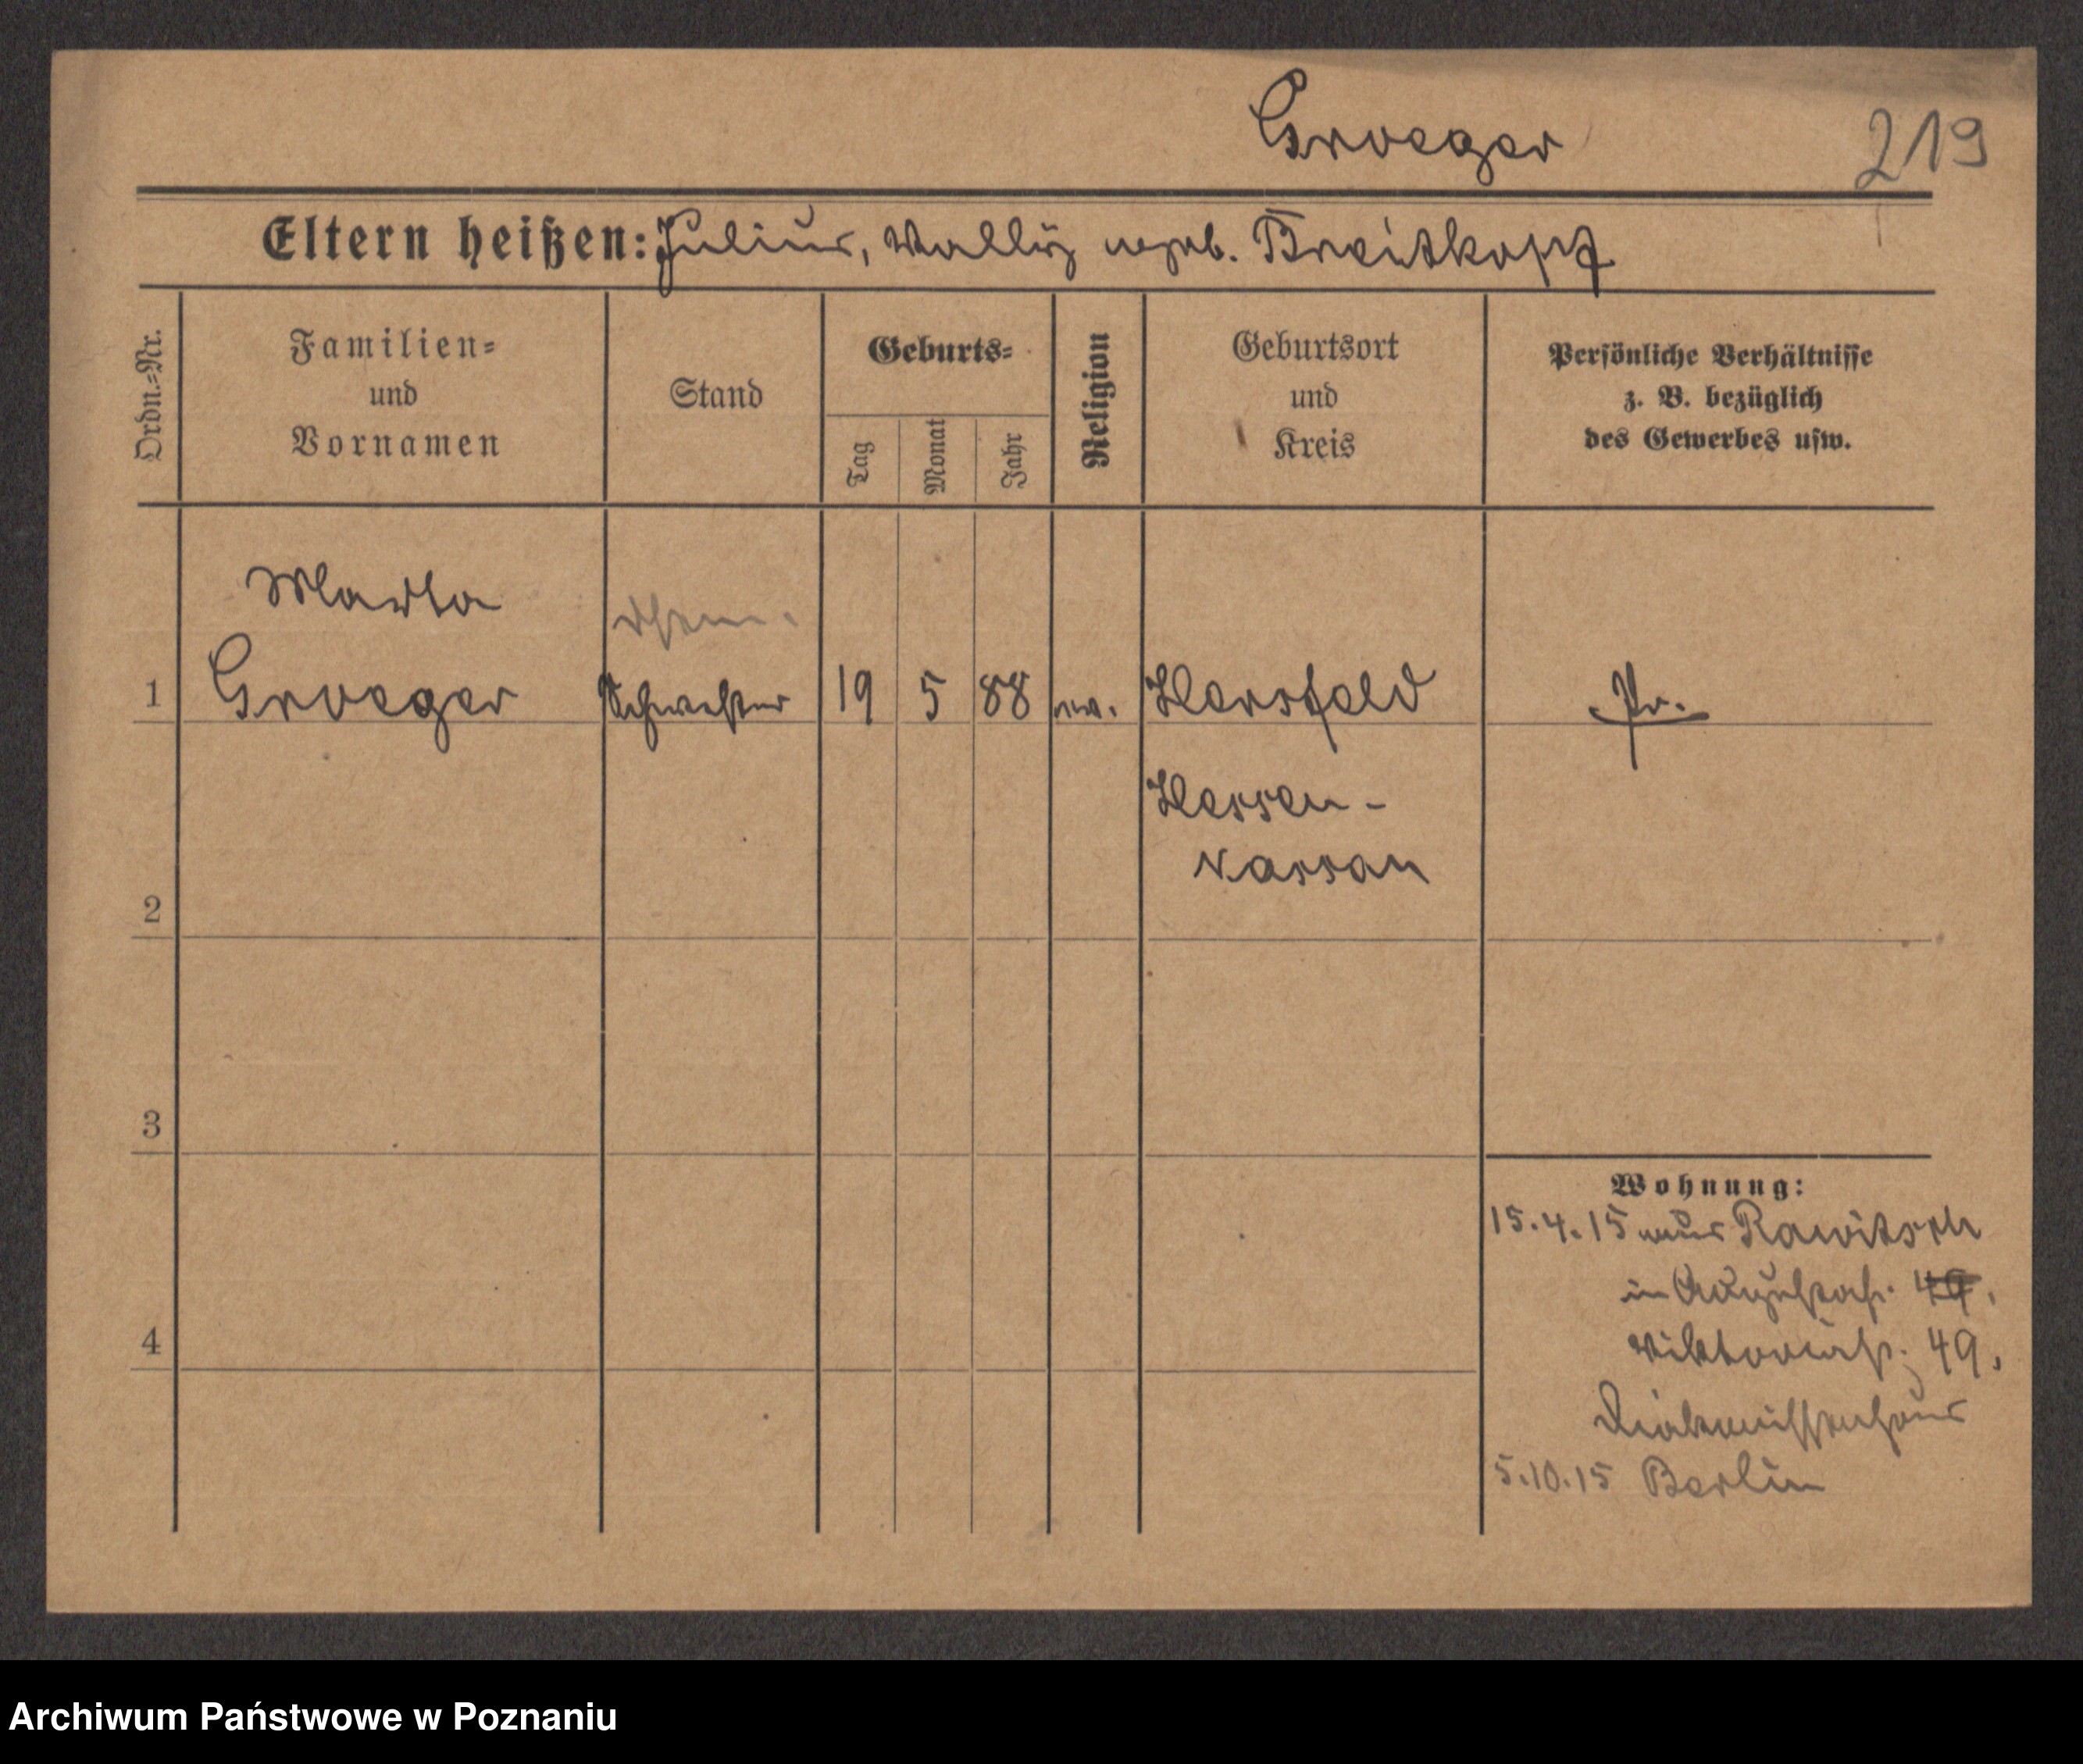 Groeger
219
Eltern heißen: Julius, Wally geb. Breitkopf
Ordn.-Nr.
Familien-
und
Vornamen
Stand
Geburts-
Tag
Monat
Jahr
Religion
Geburtsort
und
Kreis
Persönliche Verhältnisse
z. B. bezüglich
des Gewerbes usw.
Martha
1 Groeger Schwester 19 5 88 ev. Hersfeld Pr.
Hessen-
Nassau
2
3
4
Wohnung:
15.4.15 aus Rawitsch
in Augustastr. 49.
Viktoriastr. 49.
Diakonissenhaus
5.10.15 Berlin
Archiwum Państwowe w Poznaniu